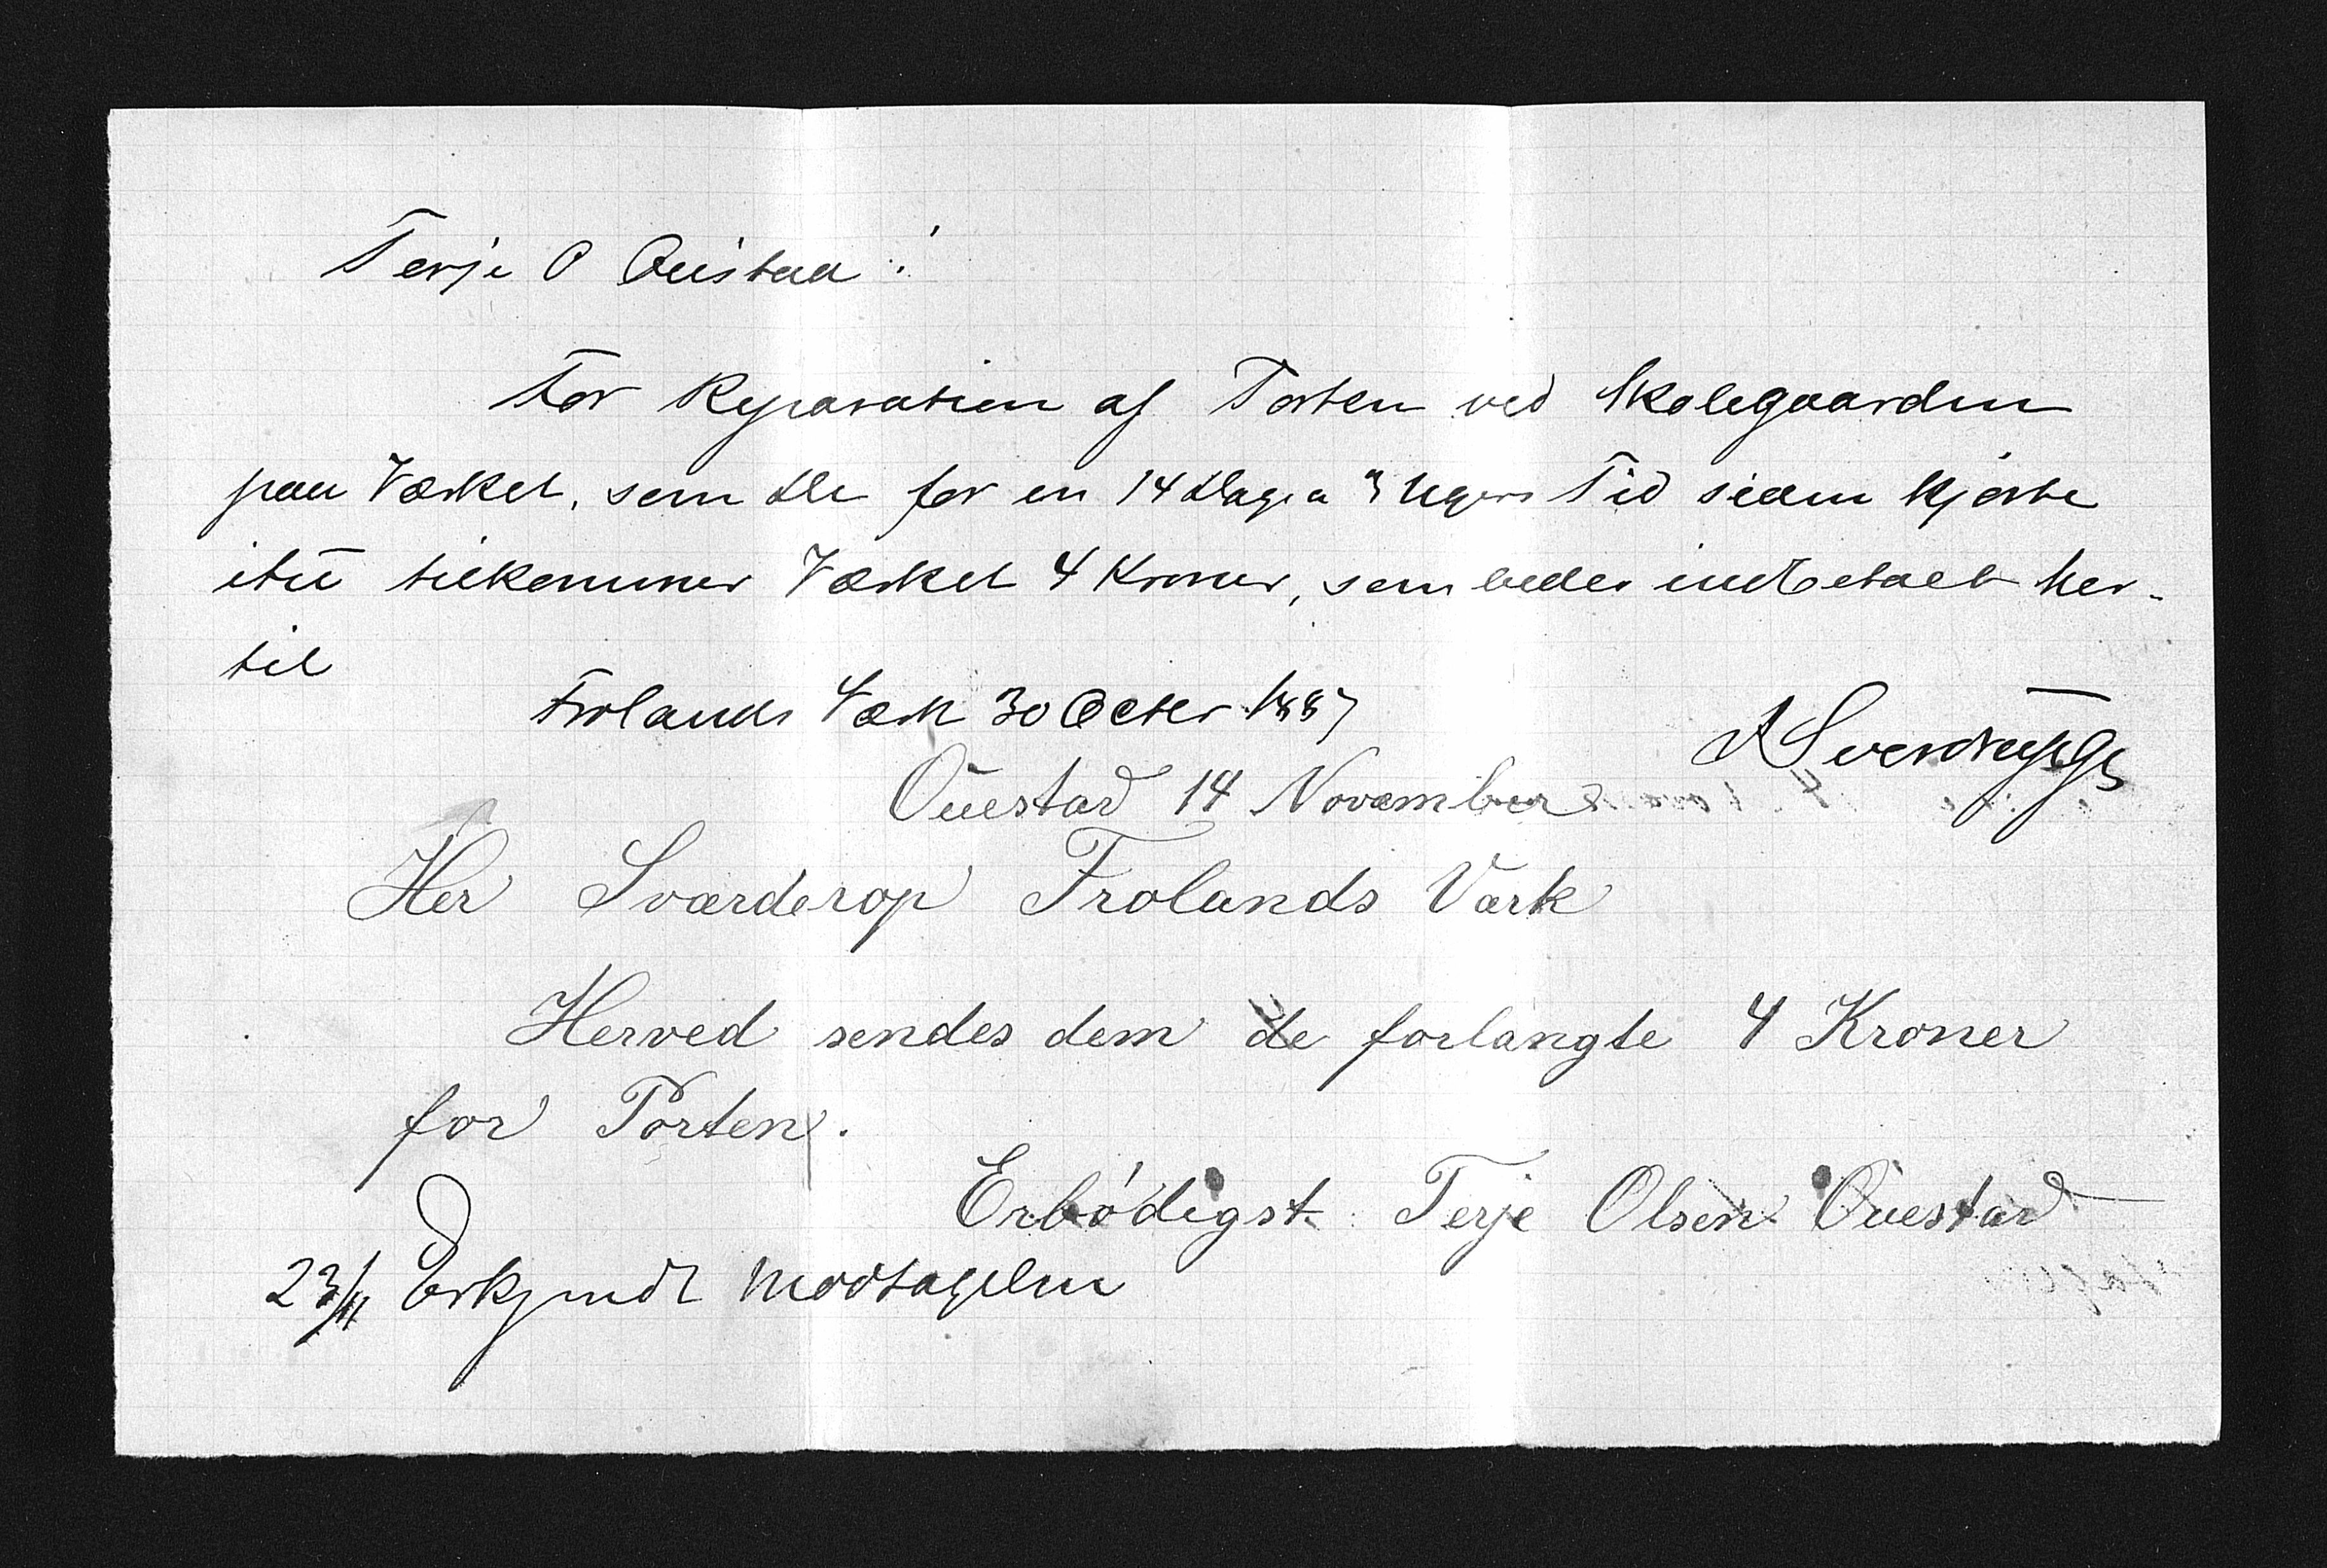 Terje O Ouestad!
For Reparation af Porten ved Skolegaarden
paa Værket, som De for en 14 Dage a 3 Ugers Tid siden kjørte
itu tilkommer Værket 4 Kroner, som bedes indbetalt her-
til
Frolands Værk 30 Octber 1887
Sverdrup
Ouestad 14 November
Her Sværderop Frolands Værk
Herved sendes dem de forlangte 4 Kroner
for Porten.
Erbödigst Terje Olsen Ouestad
23/11 Erkjendt Modtagelsen